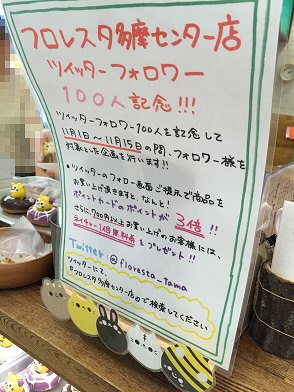 フロレスタ多摩センター店
ツイッターフォロワー
100人記念!!!
ツイッターフォロワー100人を記念して
11月1日〜11月15日の間、フォロワー様を
対象とした企画を行います!!
●ツイッターのフォロー画面ご提示で商品を
お買い上げ頂きますと、なんと!
ポイントカードのポイントが3倍!!
さらに、700円以上お買い上げのお客様には、
ネイチャー1個無料券をプレゼント!!
Twitter:@floresta_tama
ツイッターにて、
フロレスタ多摩センター店で検索してください